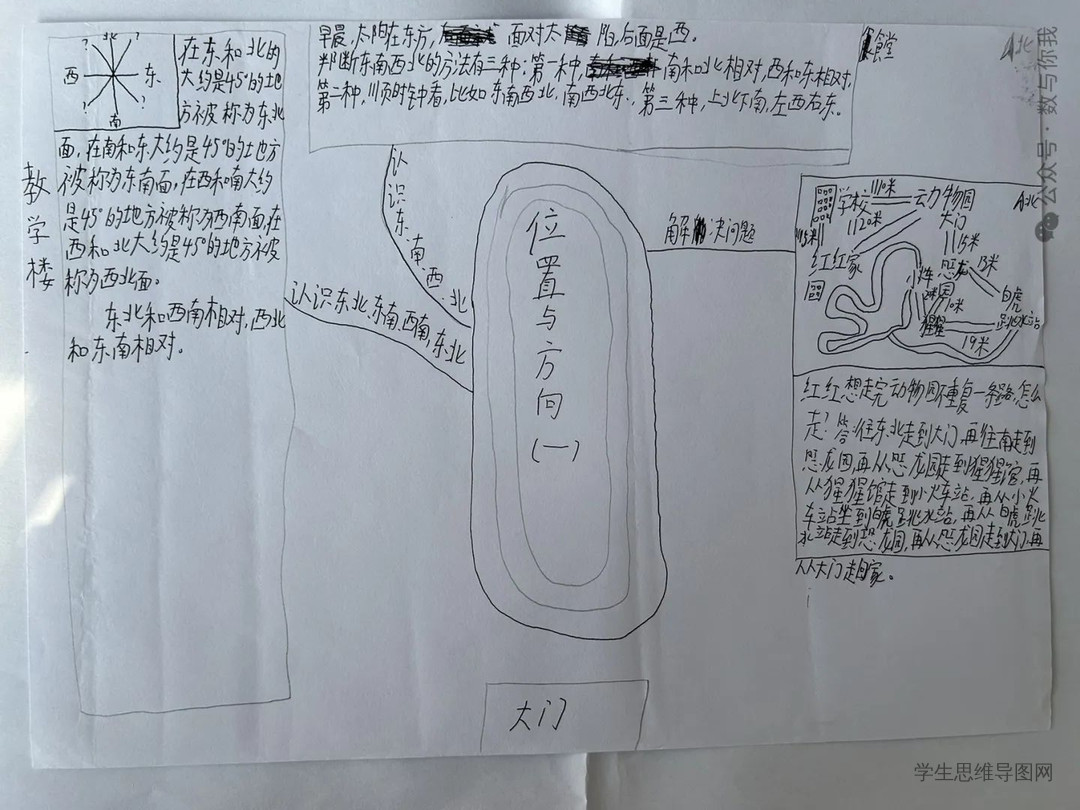 早晨,太阳在东方, 面对太 阳,后面是西。
判断东南西北的方法有三种:第一种, 南和北相对,西和东相对,
第二种,顺时钟看,比如东南西北、南西北东、第三种,上北下南,左西右东。
食堂
北
北
西 东
南
? ? ? ?
在东和北的
大约是45°的地
方被称为东北
面,在南和东大约是45°的地方
被称为东南面,在西和南大约
是45°的地方被称为西南面,在
西和北大约是45°的地方被
称为西北面。
东北和西南相对,西北
和东南相对。
教学楼
认识东、南、西、北
认识东北、东南、西南、东北
位置与方向(一)
解决问题
学校 110米 动物园
大门
北
112米
115米
红红家
恐龙
园
13米
白虎
跳水站
猩猩
19米
红红想走完动物园不重复一条路,怎么
走?答:往东北走到大门,再往南走到
恐龙园,再从恐龙园走到猩猩馆,再
从猩猩馆走到小火车站,再从小火
车站坐到白虎跳水站,再从白虎跳
水站走到恐龙园,再从恐龙园走到大门,再
从大门走回家。
大门
公众号·数与你我
学生思维导图网